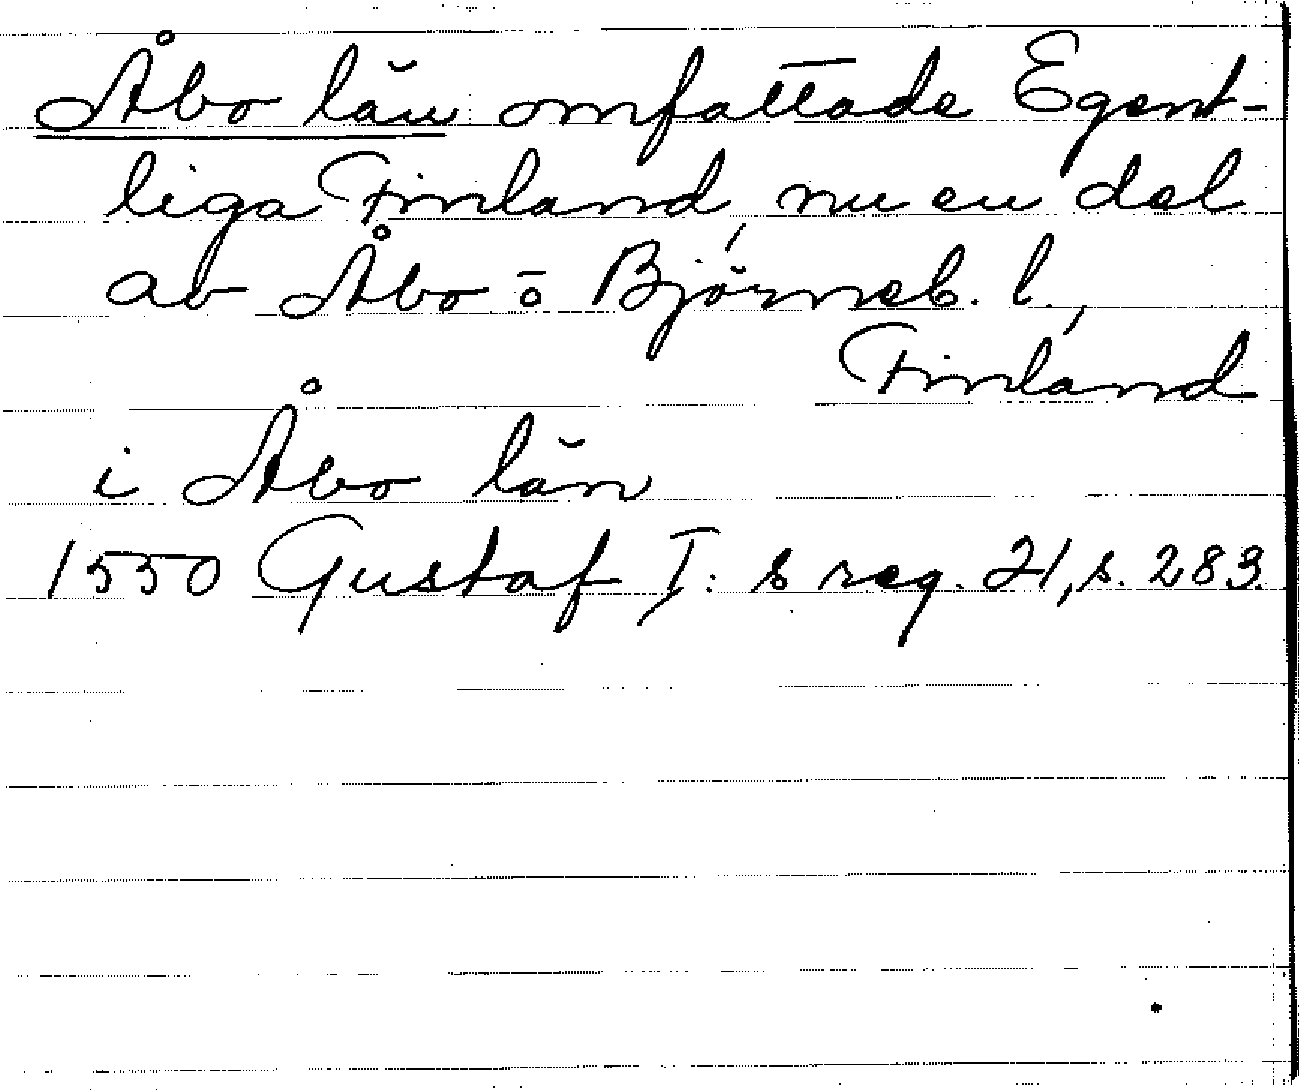 Åbo län omfattade Egent-
liga Finland, nu en del
av Åbo o Björneb. l.,
Finland
i Åbo län
1550 Gustaf I: s reg. 21, s. 283.